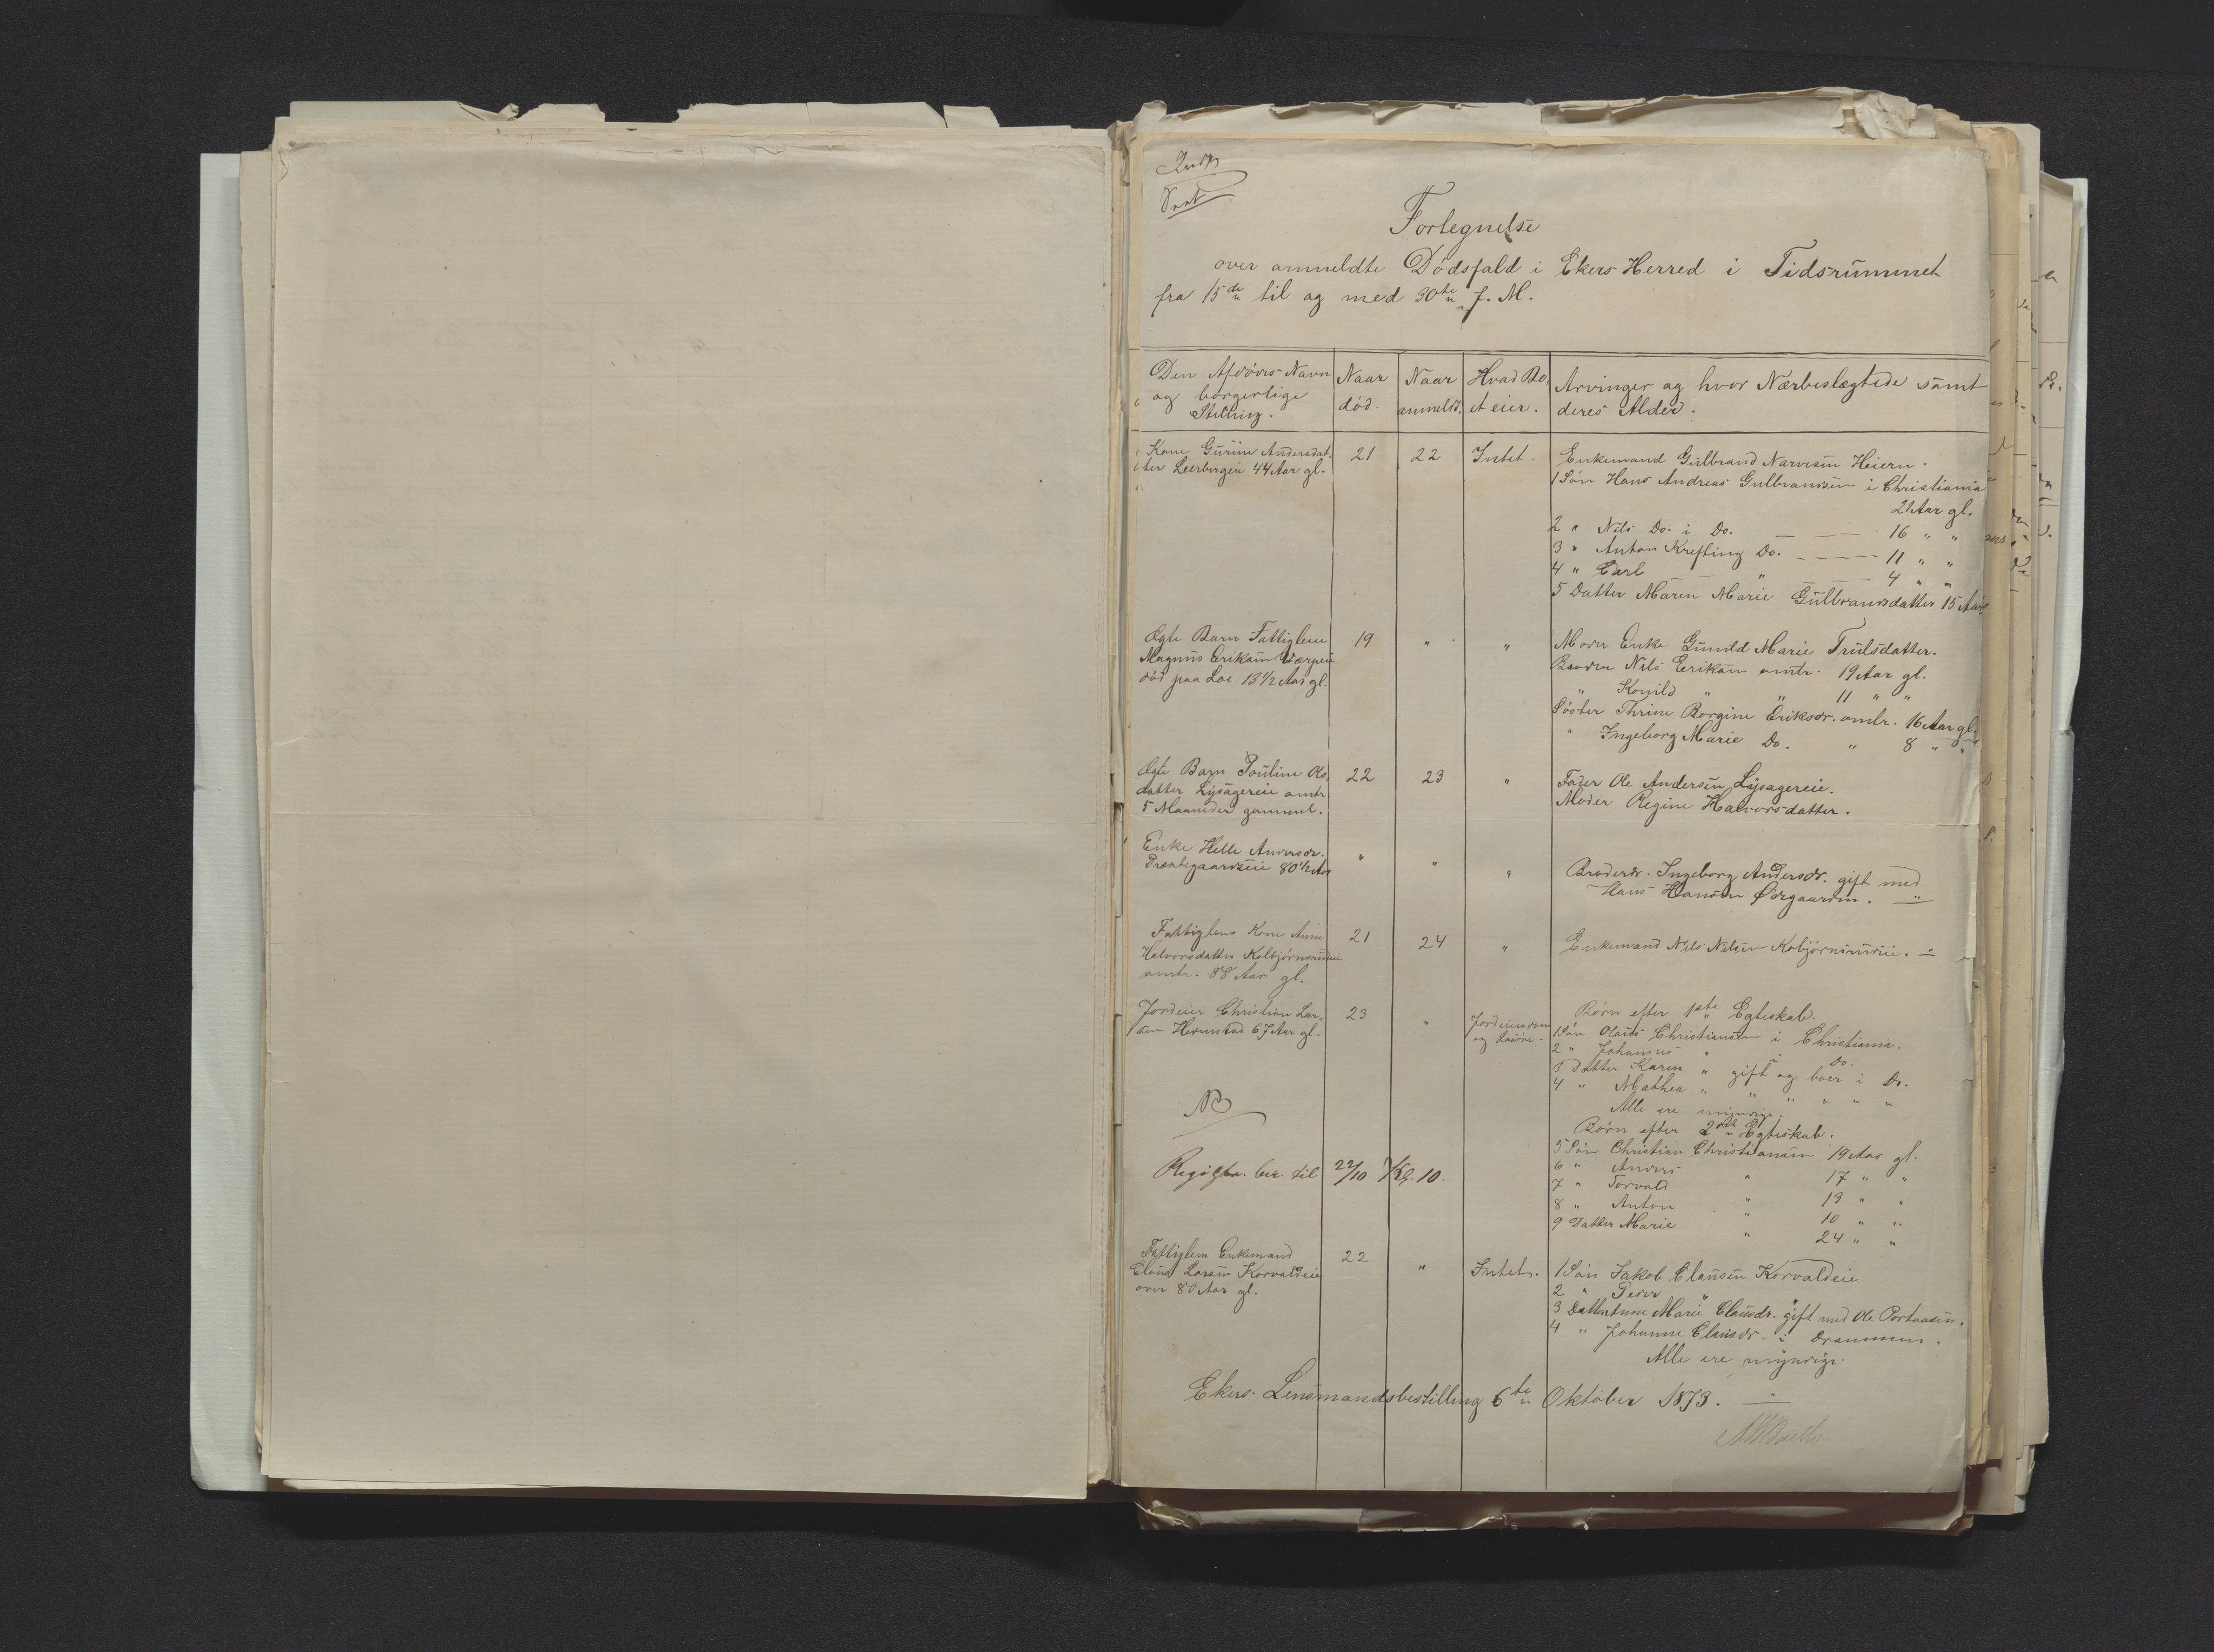 Fortegnelse
over anmeldte Dødsfald i Ekers Herred i Tidsrummet
fra 15de til og med 30te f. M.
Den Afdødes Navn og borgerlige Stilling.
Naar død.
Naar anmeldt.
Hvad Boet eier.
Arvinger og hvor Nærbeslægtede samt deres Alder.
Kone Gurine Andersdat- 21 22 Intet. Enkemand Gulbrand Narvesen Heiern.
ter Leerbergeie 44 Aar gl. 1 Søn Hans Andreas Gulbrandsen i Christiania
21 Aar gl.
2 " Nils Do. i Do. — — 16 " "
3 " Anton Krefting Do. — — — 11 " "
4 " Carl " — — 4 " "
5 Datter Maren Marie Gulbrandsdatter 15 Aar
Ægte Barn Fattiglem 19 " " Moder Enke Gunild Marie Trulsdatter.
Magnus Eriksen Broder Nils Eriksen omtr. 19 Aar gl.
død paa Loe 13 1/2 Aar gl. " " " 11 " "
Søster Thrine Borgine Eriksdr. omtr. 16 Aar gl.
" Ingeborg Marie Do. " 8 " "
Ægte Barn Pouline Ols- 22 23 " Fader Ole Andersen Lysagereie.
datter Lysagereie omtr. Moder Regine Halvorsdatter.
5 Maaneder gammel.
Enke Helle Andersdr. " " " Broderdr. Ingeborg Andersdr. gift med
Præstegaardseie 80 1/2 Aar Hans Hansen Ørgaarden. — " —
Fattiglems Kone Anne 21 24 " Enkemand Nils Nilsen Kobjørnsrudeie. —
Halvorsdatter Kolbjørnsrudeie
omtr. 88 Aar gl.
Jordeier Christian Lar- 23 " Jordeiendom Børn efter 1ste Egteskab.
sen Hermstad 67 Aar gl. og Løsøre. 1 Søn Olaus Christiansen i Christiania.
2 " Johannes " " Do.
3 Datter Karen " gift og boer i Do.
4 " Mathea " " " " " "
Alle ere myndige.
NB
Børn efter 2det Egteskab.
5 Søn Christian Christiansen 19 Aar gl.
Registr. ber. til 22/10 Kl. 10. 6 " Anders " 17 " "
7 " Torvald " 13 " "
8 " Anton " 10 " "
9 Datter Marie " 24 " "
Fattiglem Enkemand 22 " Intet. 1 Søn Jakob Clausen Korvaldeie
Claus Larsen Korvaldeie 2 " Peder " "
over 80 Aar gl. 3 Datter Anne Marie Clausdr. gift med Ole Portaasen.
4 " Johanne Clausdr. i Drammen.
Alle ere myndige.
Ekers Lensmandsbestilling 6te Oktober 1873.